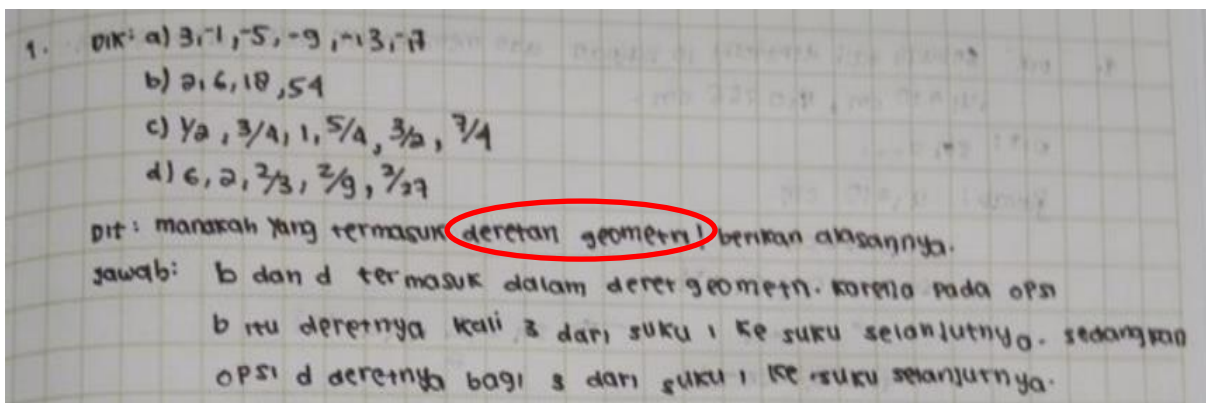 1. Dik: a) 3,-1,-5,-9,-13,-17
b) 2, 6, 18, 54
c) 1/2, 3/4, 1, 5/4, 3/2, 7/4
d) 6, 2, 2/3, 2/9, 2/27
Dit: manakah yang termasuk deretan geometri! berikan alasannya.
Jawab: b dan d termasuk dalam deret geometri. karena pada opsi
b itu deretnya kali 3 dari suku 1 ke suku selanjutnya. sedangkan
opsi d deretnya bagi 3 dari suku 1 ke suku selanjutnya.